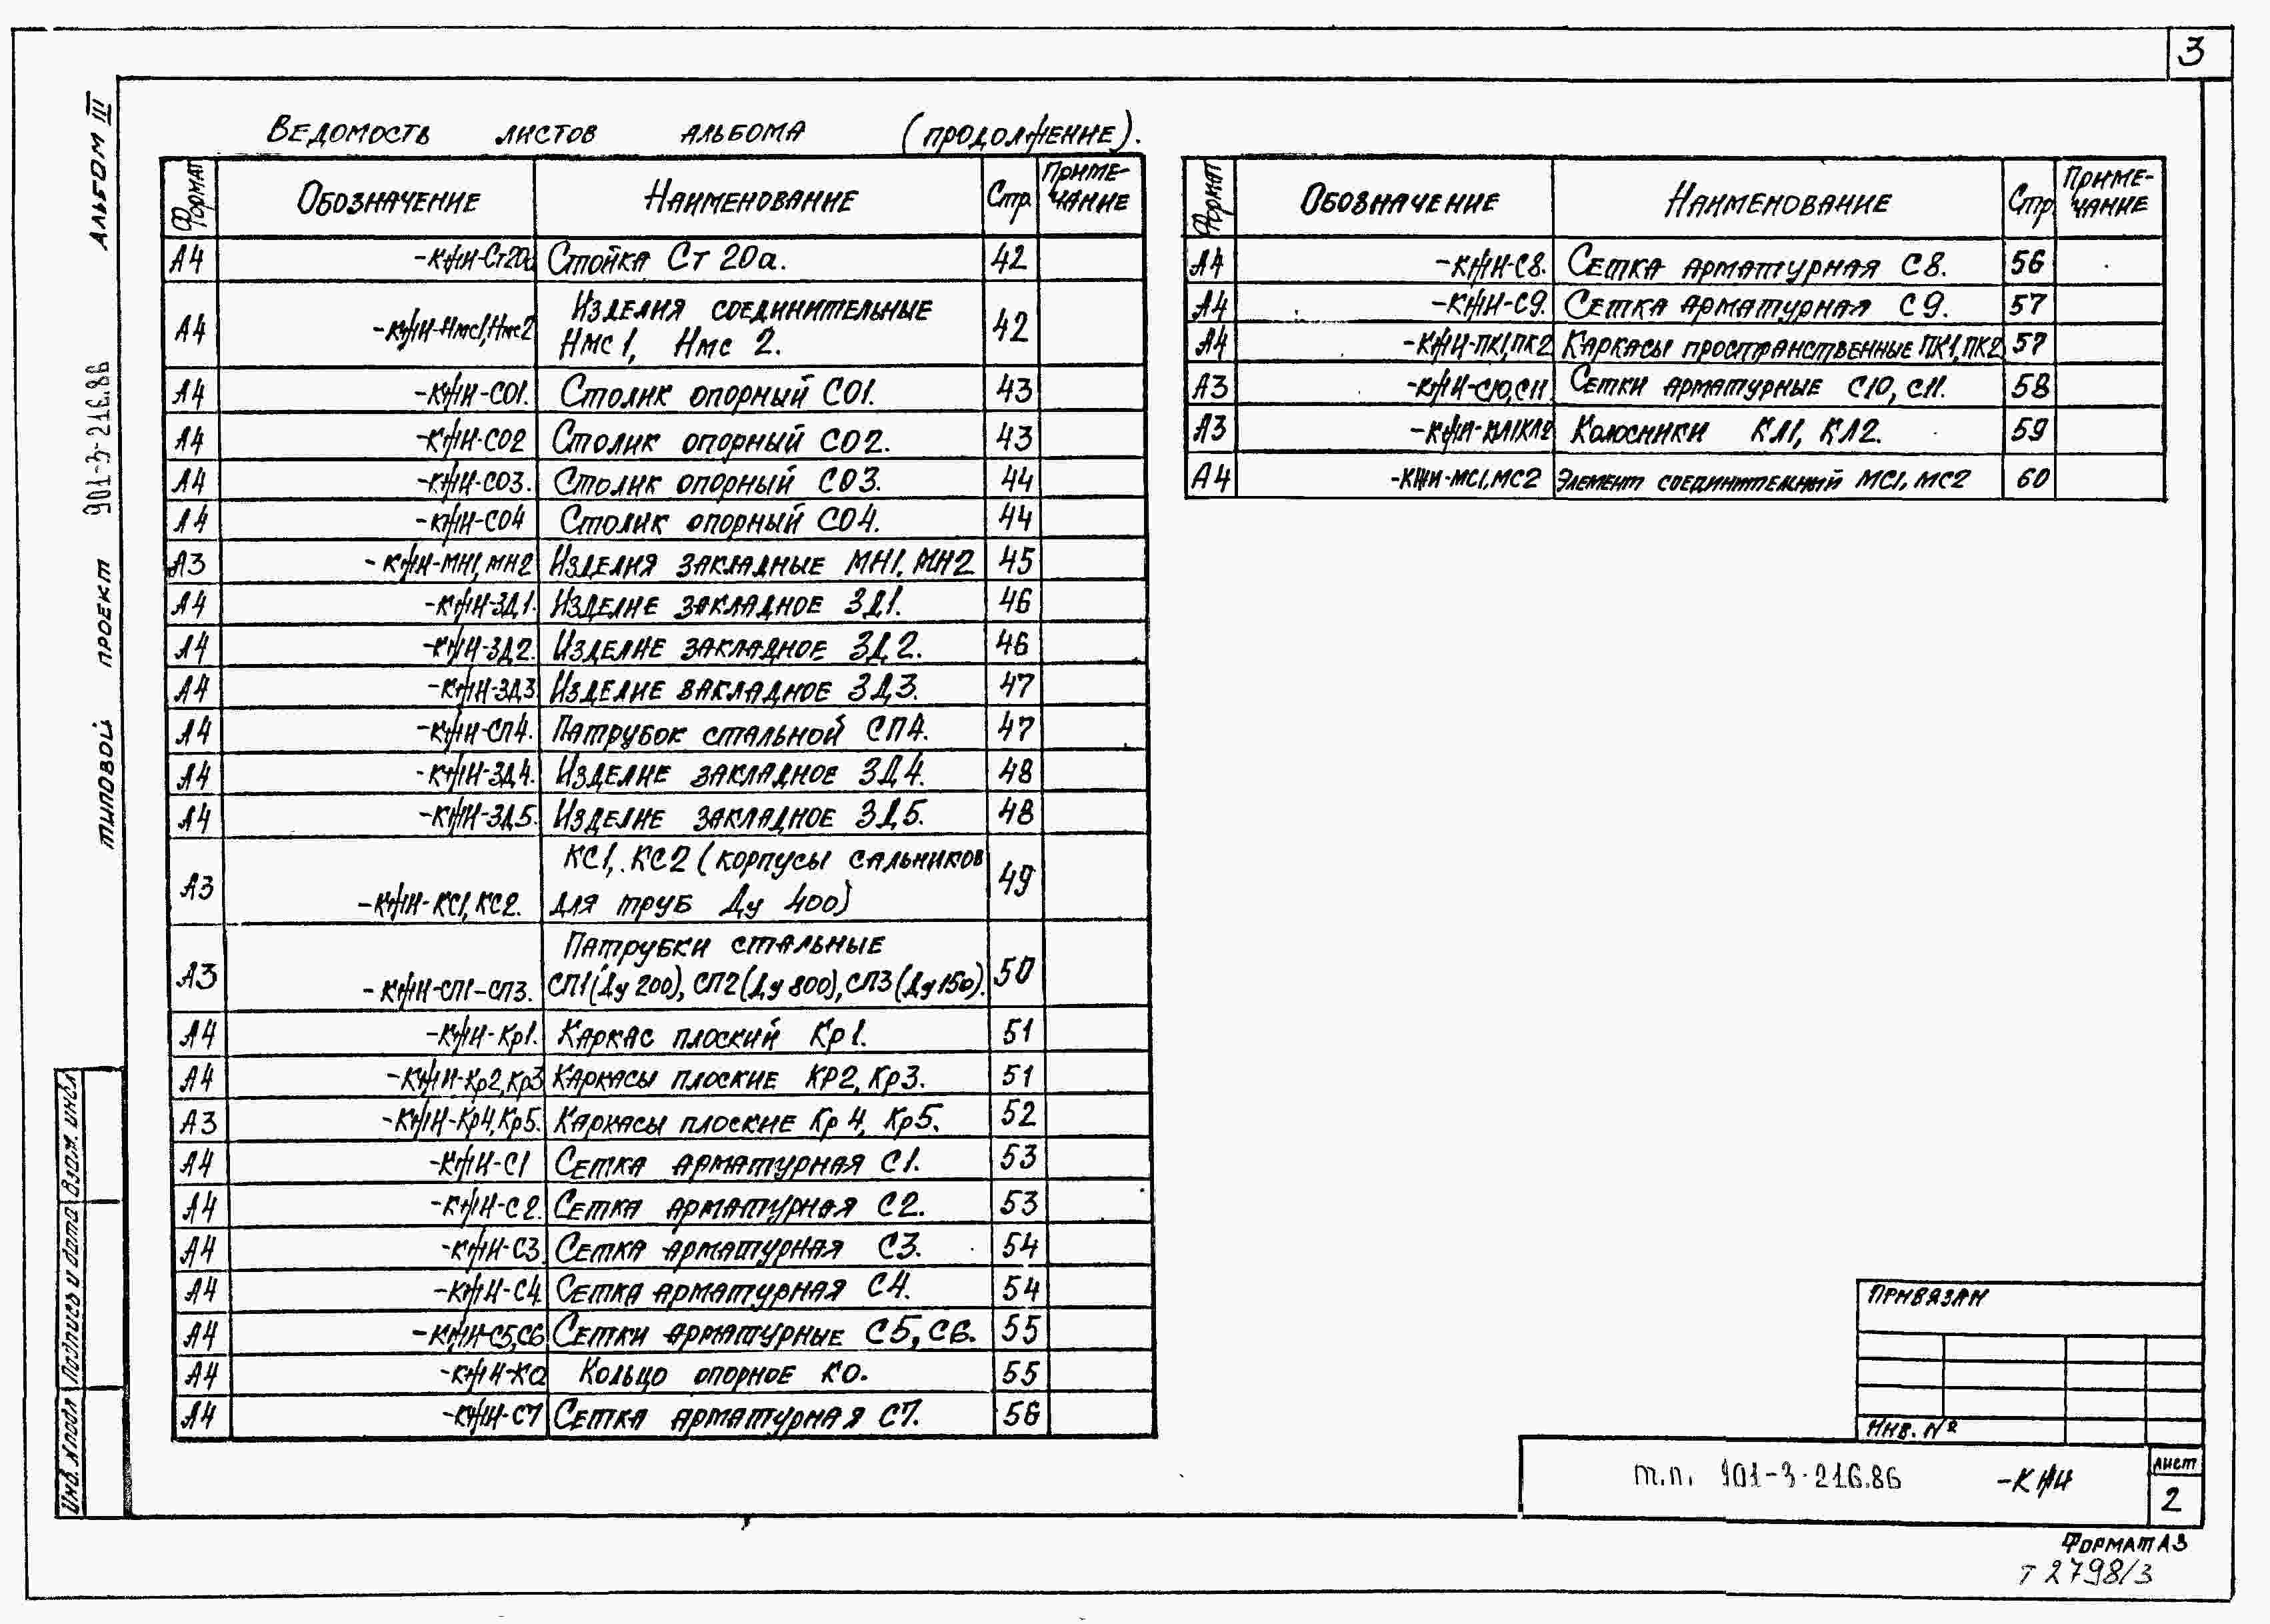 3
Альбом III
Типовой проект 901-3-216.86
Ведомость листов альбома (продолжение).
Формат Обозначение Наименование Стр. Приме-
чание
А4 -КЖИ-Ст20а Стойка Ст 20а. 42
А4 -КЖИ-Нмс1,Нмс2 Изделия соединительные
Нмс 1, Нмс 2. 42
А4 -КЖИ-СО1. Столик опорный СО1. 43
А4 -КЖИ-СО2 Столик опорный СО2. 43
А4 -КЖИ-СО3. Столик опорный СО3. 44
А4 -КЖИ-СО4 Столик опорный СО4. 44
А3 -КЖИ-МН1,МН2 Изделия закладные МН1, МН2 45
А4 -КЖИ-ЗД1. Изделие закладное ЗД1. 46
А4 -КЖИ-ЗД2. Изделие закладное ЗД2. 46
А4 -КЖИ-ЗД3 Изделие закладное ЗД3. 47
А4 -КЖИ-СП4. Патрубок стальной СП4. 47
А4 -КЖИ-ЗД4. Изделие закладное ЗД4. 48
А4 -КЖИ-ЗД5. Изделие закладное ЗД5. 48
А3 -КЖИ-КС1,КС2. КС1, КС2 (корпусы сальников
для труб Ду 400) 49
А3 -КЖИ-СП1-СП3. Патрубки стальные
СП1(Ду 200), СП2(Ду 800), СП3(Ду 150). 50
А4 -КЖИ-Кр1. Каркас плоский Кр1. 51
А4 -КЖИ-Кр2,Кр3 Каркасы плоские КР2, Кр3. 51
А3 -КЖИ-Кр4,Кр5. Каркасы плоские Кр 4, Кр5. 52
А4 -КЖИ-С1 Сетка арматурная С1. 53
А4 -КЖИ-С2. Сетка арматурная С2. 53
А4 -КЖИ-С3 Сетка арматурная С3. 54
А4 -КЖИ-С4 Сетка арматурная С4. 54
А4 -КЖИ-С5,С6 Сетки арматурные С5, С6. 55
А4 -КЖИ-КО Кольцо опорное КО. 55
А4 -КЖИ-С7 Сетка арматурная С7. 56
Формат Обозначение Наименование Стр Приме-
чание
А4 -КЖИ-С8. Сетка арматурная С8. 56
А4 -КЖИ-С9. Сетка арматурная С9. 57
А4 -КЖИ-ПК1,ПК2 Каркасы пространственные ПК1,ПК2 57
А3 -КЖИ-С10,С11 Сетки арматурные С10, С11. 58
А3 -КЖИ-КЛ1КЛ2 Колосники КЛ1, КЛ2. 59
А4 -КЖИ-МС1,МС2 Элемент соединительный МС1, МС2 60
Инв. № подл Подпись и дата Взам. инв.№
Привязан
Инв. №
т.п. 901-3-216.86 -КЖИ
лист
2
Формат А3
Т 2798/3